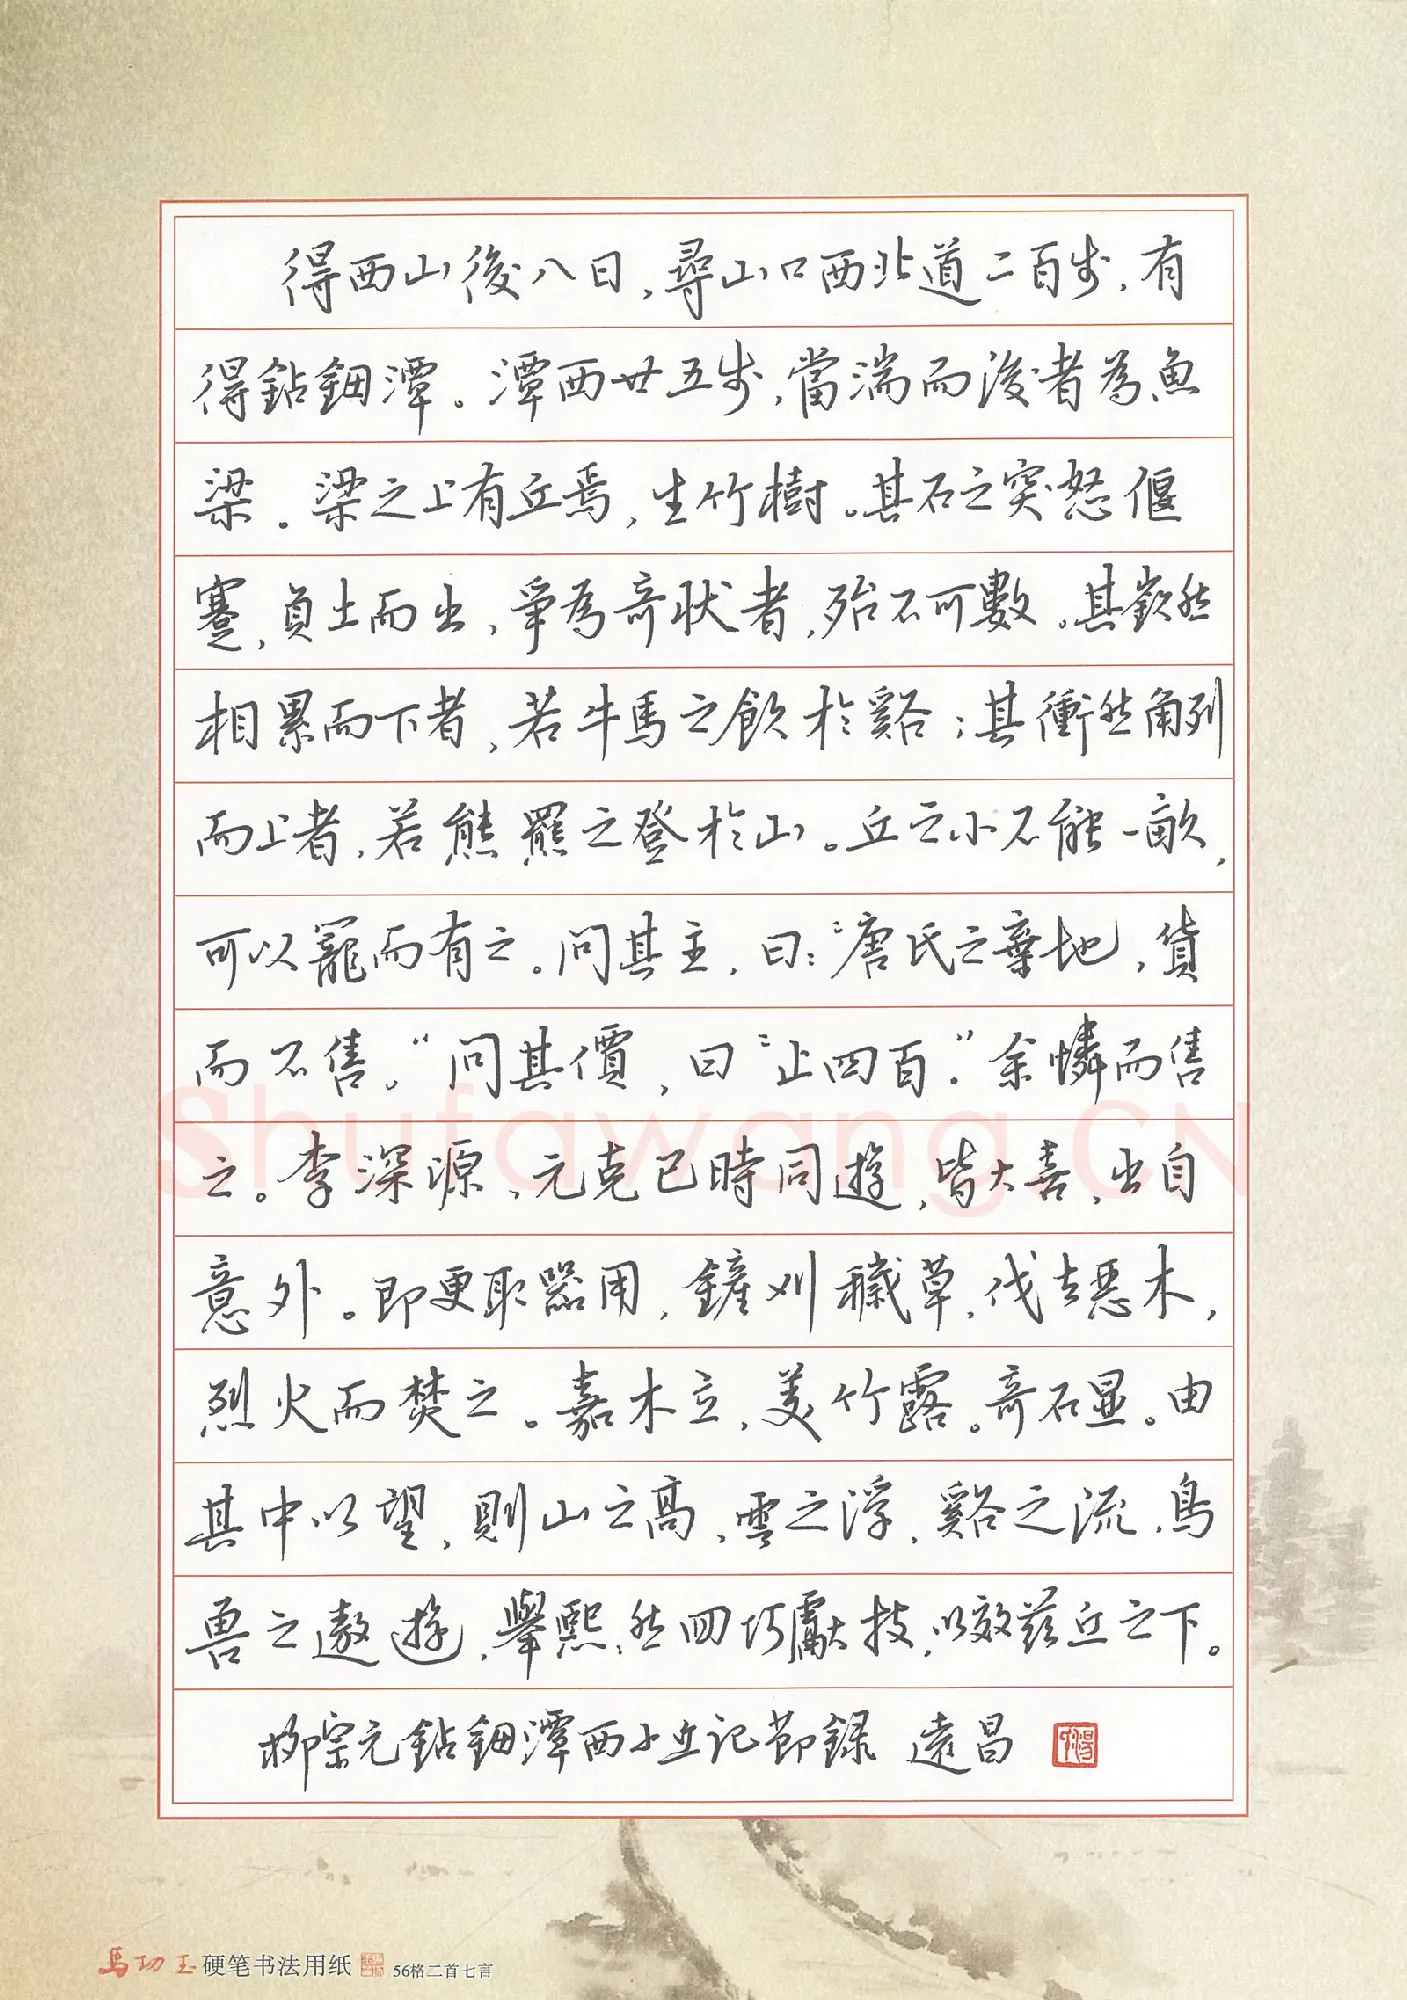 得西山後八日，尋山口西北道二百步，有
得鈷鉧潭。潭西廿五步，當湍而浚者為魚
梁。梁之上有丘焉，生竹樹。其石之突怒偃
蹇，負土而出，爭為奇狀者，殆不可數。其嶔然
相累而下者，若牛馬之飲於谿；其衝然角列
而上者，若熊羆之登於山。丘之小不能一畝，
可以籠而有之。問其主，曰：“唐氏之棄地，貨
而不售。”問其價，曰“止四百。”余憐而售
之。李深源，元克已時同遊，皆大喜，出自
意外。即更取器用，鏟刈穢草，伐去惡木，
烈火而焚之。嘉木立，美竹露。奇石显。由
其中以望，則山之高，雲之浮，谿之流，鳥
兽之遨遊，舉熙，然四巧獻技，以效兹丘之下。
柳宗元鈷鉧潭西小丘記節録 遠昌
Shufawang.CN
馬功玉硬笔书法用纸 56格二首七言